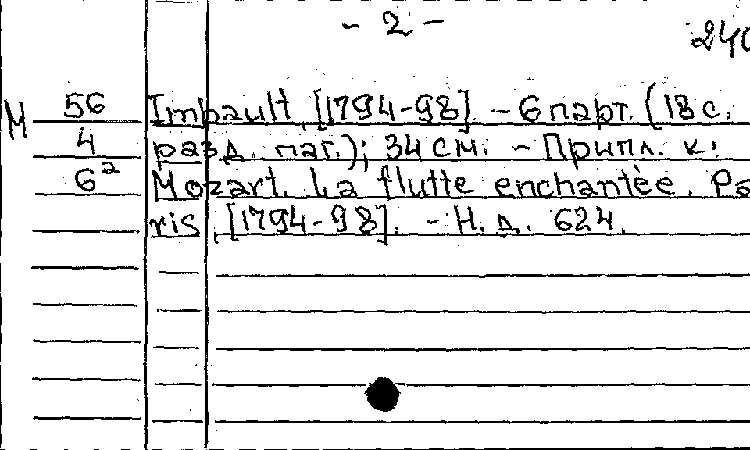 - 2 -
240
M 56 Imbault, [1794-98] - 6 парт. (18 с.
4 разд. паг.); 34 см. - Припл. к:
6² Mozart. La flutte enchantée. Pa-
ris, [1794-98]. - Н.д. 624.